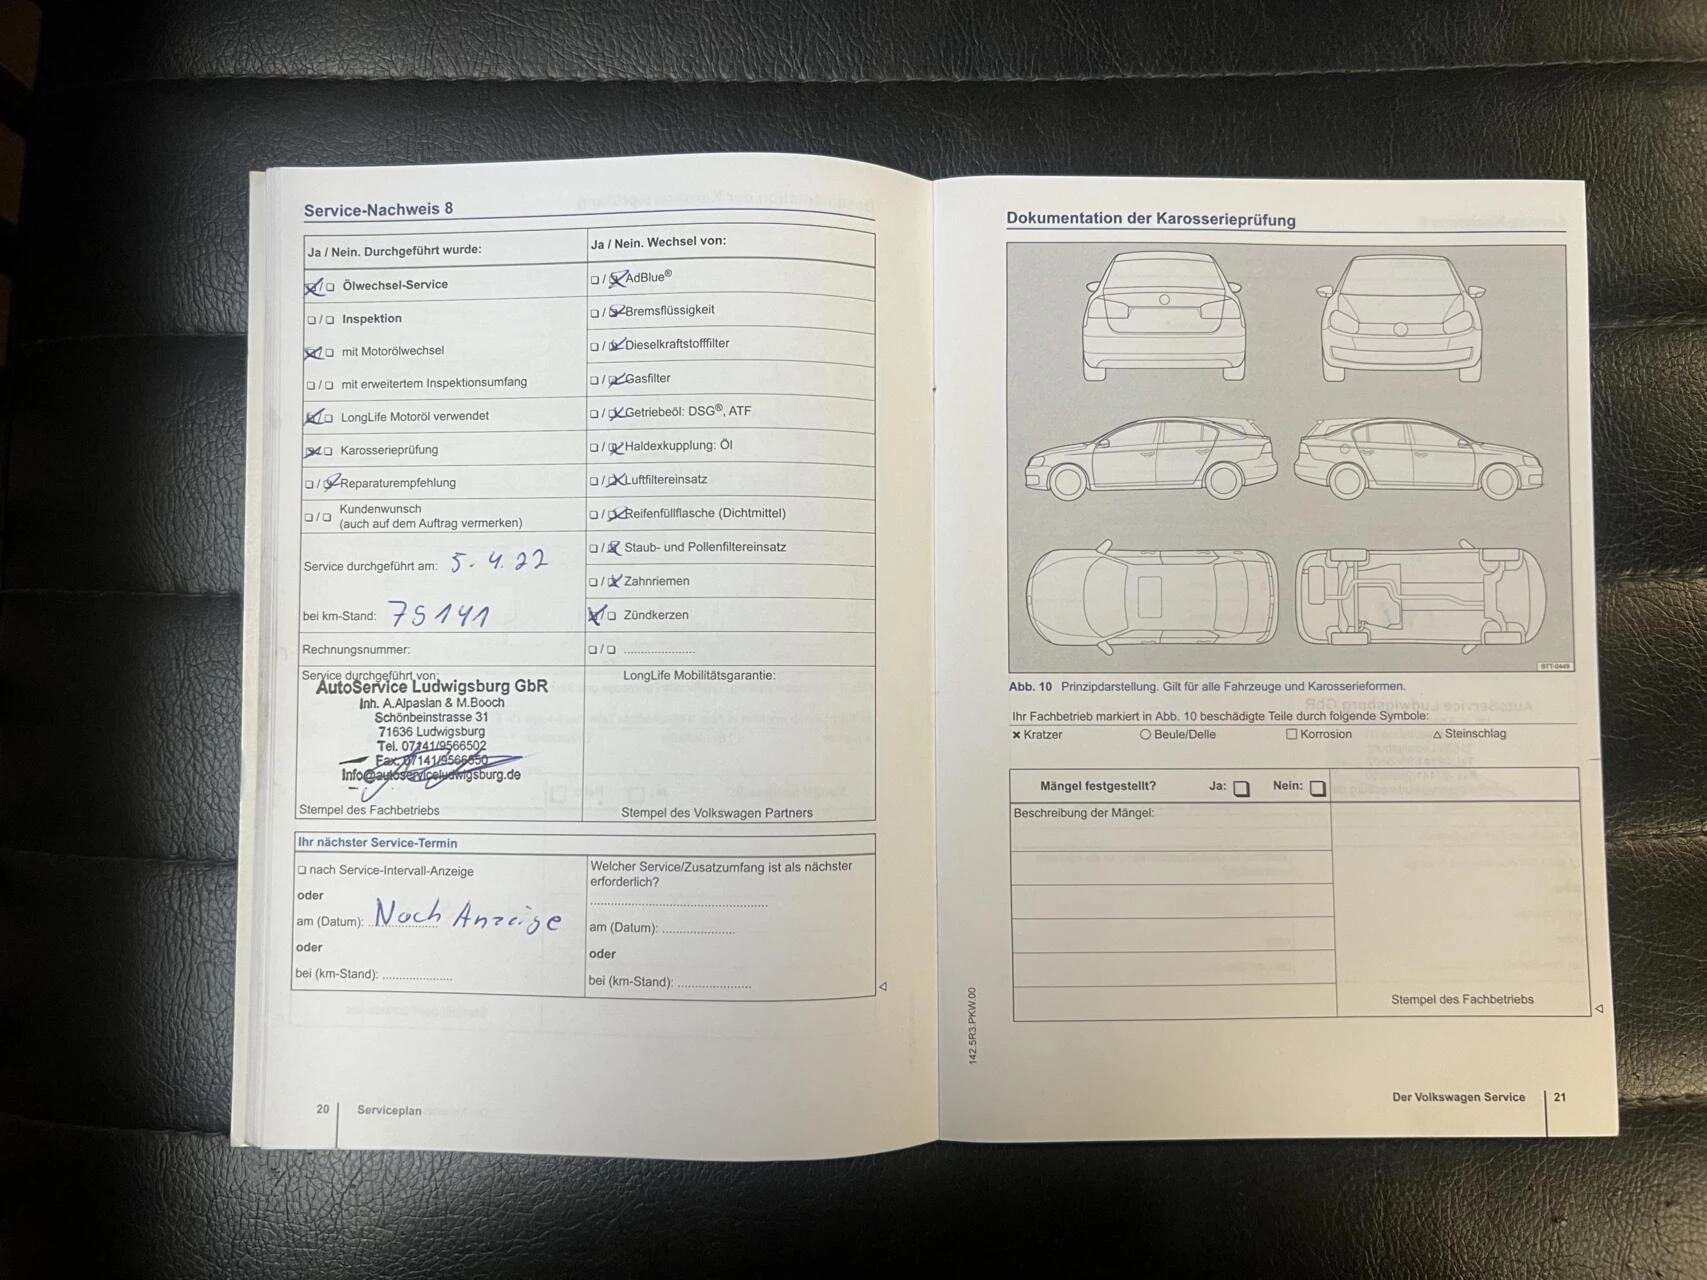 Service-Nachweis 8
Ja / Nein. Durchgeführt wurde:
❏ / ❏ Ölwechsel-Service
❏ / ❏ Inspektion
❏ / ❏ mit Motorölwechsel
❏ / ❏ mit erweitertem Inspektionsumfang
❏ / ❏ LongLife Motoröl verwendet
❏ / ❏ Karosserieprüfung
❏ / ❏ Reparaturempfehlung
❏ / ❏ Kundenwunsch
(auch auf dem Auftrag vermerken)
Service durchgeführt am: 5.4.22
bei km-Stand: 75141
Rechnungsnummer:
Service durchgeführt von:
AutoService Ludwigsburg GbR
Inh. A.Alpaslan & M.Booch
Schönbeinstrasse 31
71636 Ludwigsburg
Tel. 07141/9566502
Fax. 07141/9566550
Info@autoserviceludwigsburg.de
Stempel des Fachbetriebs
Ja / Nein. Wechsel von:
❏ / ❏ AdBlue®
❏ / ❏ Bremsflüssigkeit
❏ / ❏ Dieselkraftstofffilter
❏ / ❏ Gasfilter
❏ / ❏ Getriebeöl: DSG®, ATF
❏ / ❏ Haldexkupplung: Öl
❏ / ❏ Luftfiltereinsatz
❏ / ❏ Reifenfüllflasche (Dichtmittel)
❏ / ❏ Staub- und Pollenfiltereinsatz
❏ / ❏ Zahnriemen
❏ / ❏ Zündkerzen
❏ / ❏ .....................
LongLife Mobilitätsgarantie:
Stempel des Volkswagen Partners
Ihr nächster Service-Termin
❏ nach Service-Intervall-Anzeige
oder
am (Datum): Nach Anzeige
oder
bei (km-Stand): ....................
Welcher Service/Zusatzumfang ist als nächster
erforderlich?
am (Datum): .....................
oder
bei (km-Stand): .....................
20 Serviceplan
Dokumentation der Karosserieprüfung
BTT-0449
Abb. 10 Prinzipdarstellung. Gilt für alle Fahrzeuge und Karosserieformen.
Ihr Fachbetrieb markiert in Abb. 10 beschädigte Teile durch folgende Symbole:
× Kratzer ○ Beule/Delle □ Korrosion △ Steinschlag
Mängel festgestellt? Ja: ❏ Nein: ❏
Beschreibung der Mängel:
Stempel des Fachbetriebs
142.5R3.PKW.00
Der Volkswagen Service 21